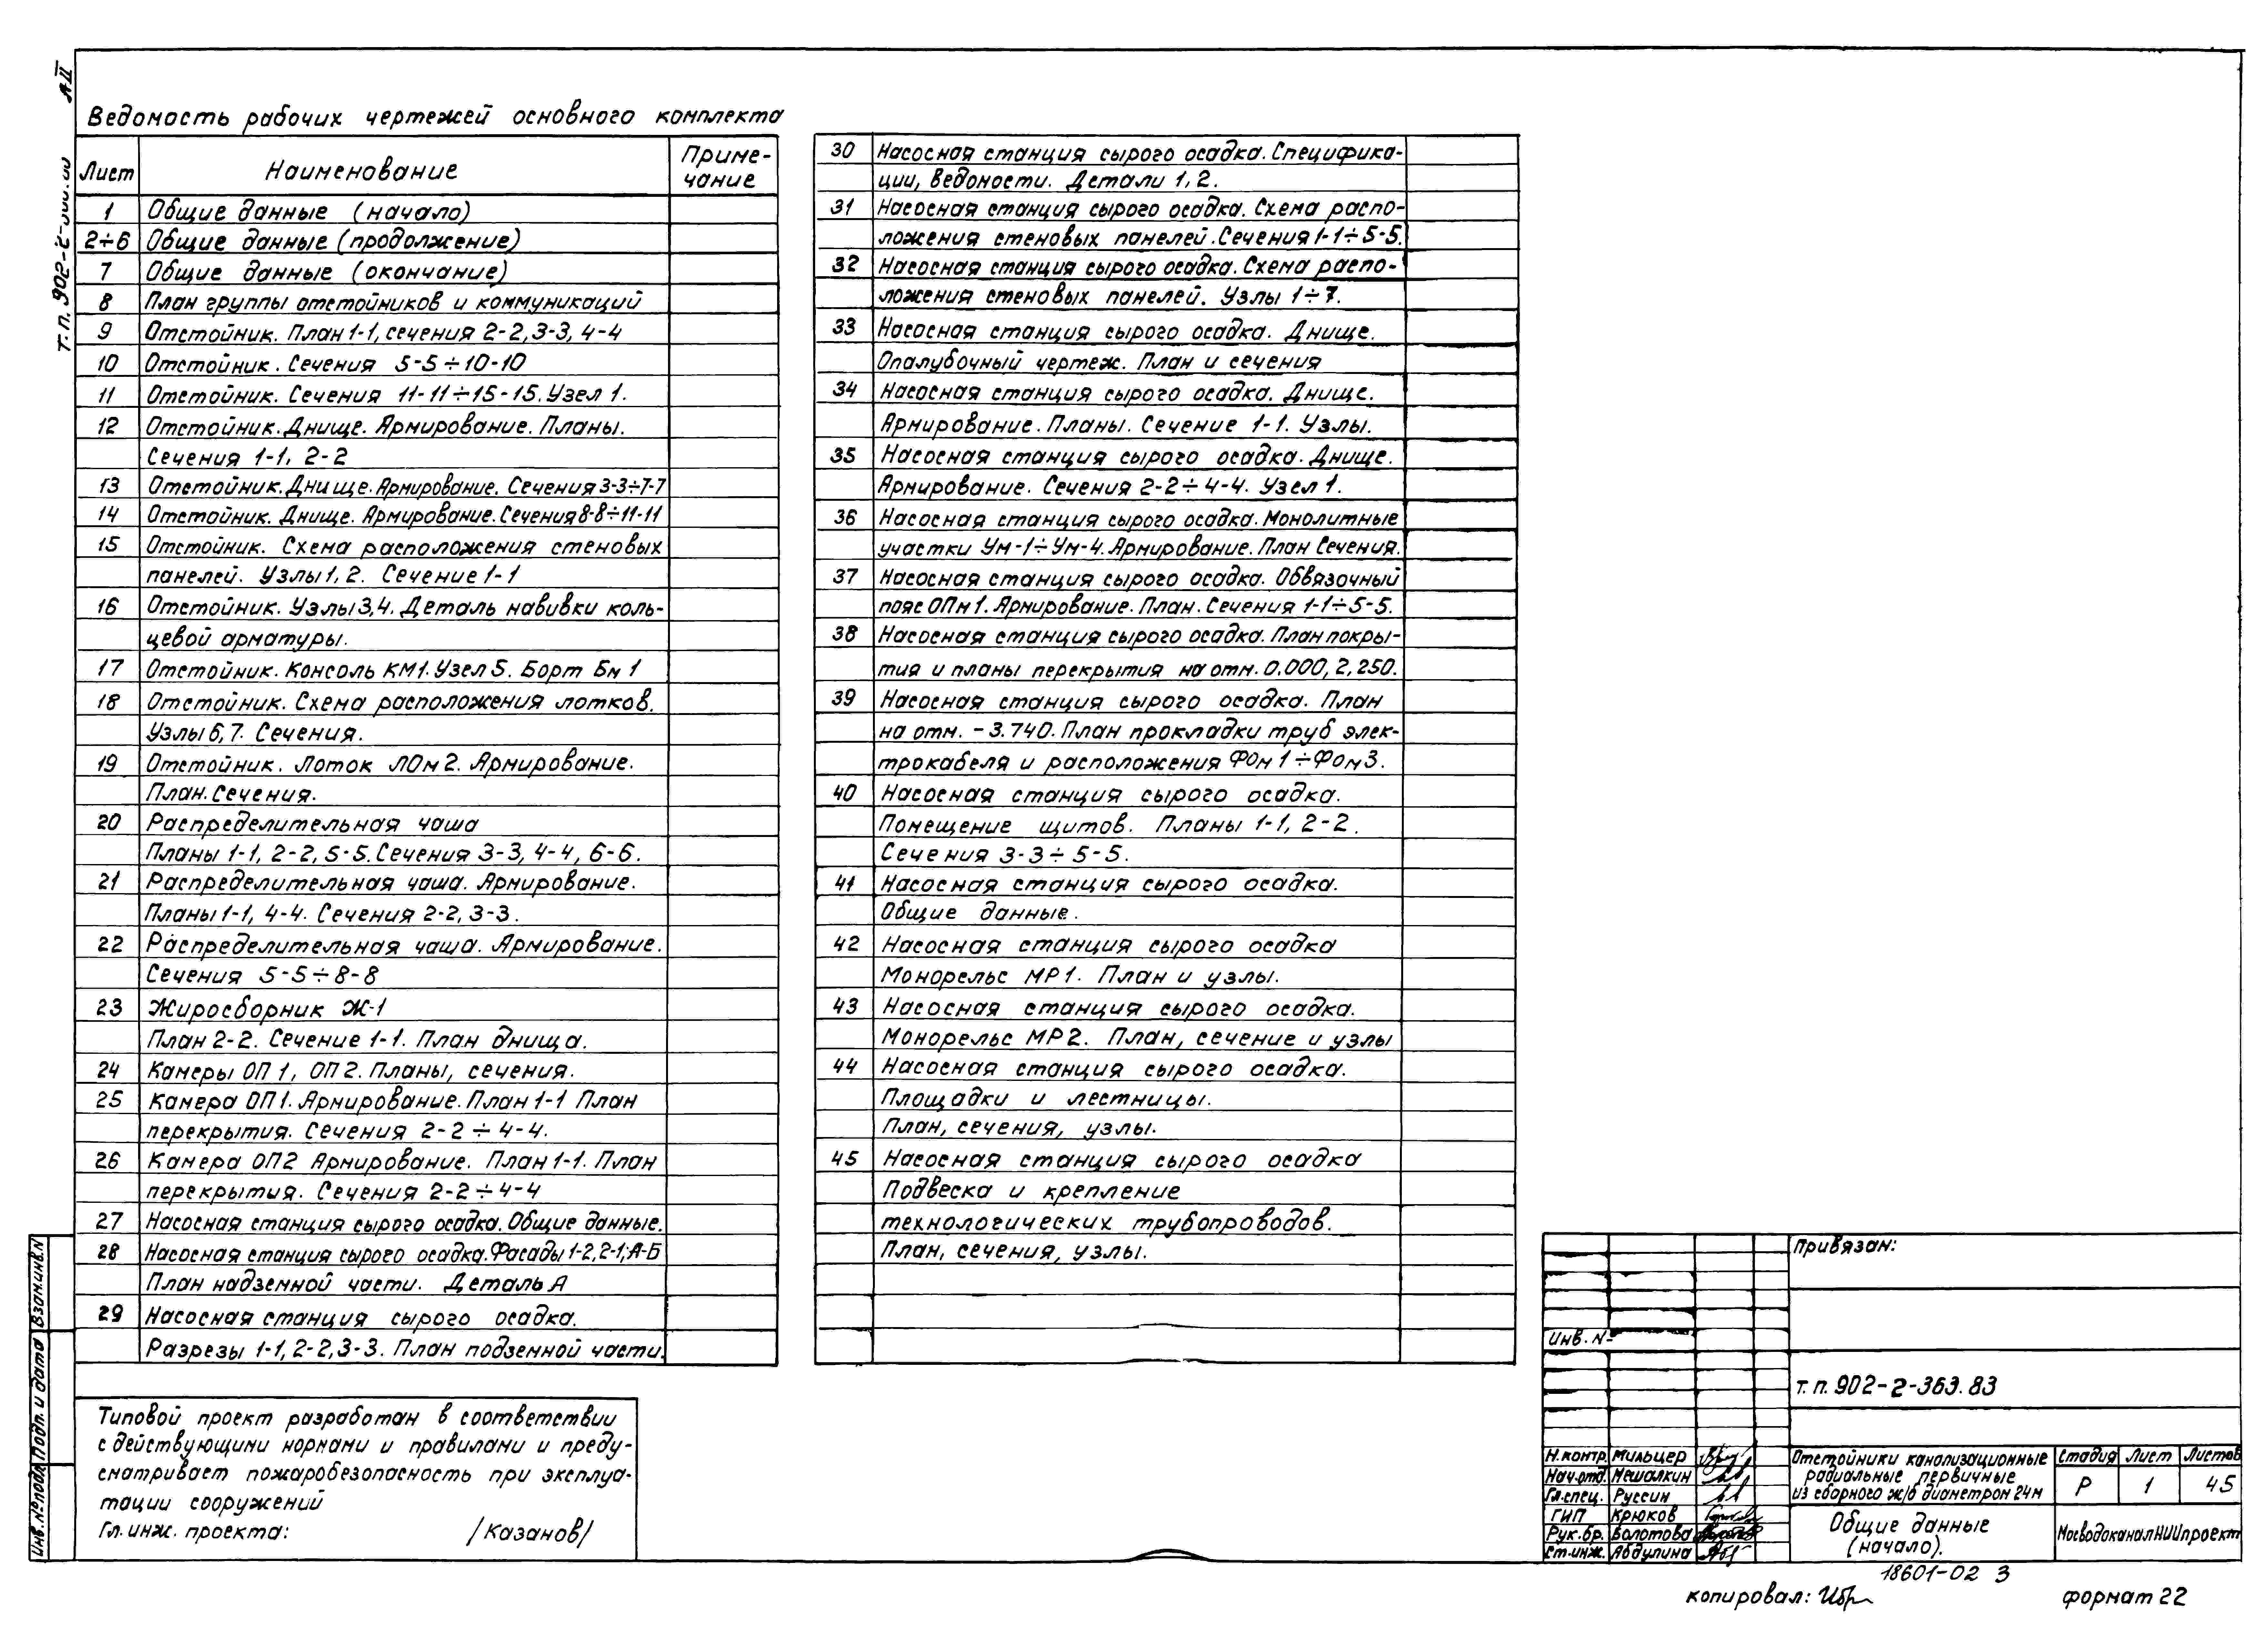 А-II
т.п. 902-2-
Ведомость рабочих чертежей основного комплекта
Лист Наименование Приме-
чание
1 Общие данные (начало)
2÷6 Общие данные (продолжение)
7 Общие данные (окончание)
8 План группы отстойников и коммуникаций
9 Отстойник. План 1-1, сечения 2-2, 3-3, 4-4
10 Отстойник. Сечения 5-5÷10-10
11 Отстойник. Сечения 11-11÷15-15. Узел 1.
12 Отстойник. Днище. Армирование. Планы.
Сечения 1-1, 2-2
13 Отстойник. Днище. Армирование. Сечения 3-3÷7-7
14 Отстойник. Днище. Армирование. Сечения 8-8÷11-11
15 Отстойник. Схема расположения стеновых
панелей. Узлы 1, 2. Сечение 1-1
16 Отстойник. Узлы 3,4. Деталь навивки коль-
цевой арматуры.
17 Отстойник. Консоль КМ1. Узел 5. Борт Бм 1
18 Отстойник. Схема расположения лотков.
Узлы 6,7. Сечения.
19 Отстойник. Лоток ЛОм 2. Армирование.
План. Сечения.
20 Распределительная чаша
Планы 1-1, 2-2, 5-5. Сечения 3-3, 4-4, 6-6.
21 Распределительная чаша. Армирование.
Планы 1-1, 4-4. Сечения 2-2, 3-3.
22 Распределительная чаша. Армирование.
Сечения 5-5÷8-8
23 Жиросборник Ж-1
План 2-2. Сечение 1-1. План днища.
24 Камеры ОП 1, ОП 2. Планы, сечения.
25 Камера ОП1. Армирование. План 1-1 План
перекрытия. Сечения 2-2÷4-4.
26 Камера ОП2 Армирование. План 1-1. План
перекрытия. Сечения 2-2÷4-4
27 Насосная станция сырого осадка. Общие данные.
28 Насосная станция сырого осадка. Фасады 1-2, 2-1; А-Б
План надземной части. Деталь А
29 Насосная станция сырого осадка.
Разрезы 1-1, 2-2, 3-3. План подземной части.
30 Насосная станция сырого осадка. Специфика-
ции, ведомости. Детали 1, 2.
31 Насосная станция сырого осадка. Схема распо-
ложения стеновых панелей. Сечения 1-1÷5-5.
32 Насосная станция сырого осадка. Схема распо-
ложения стеновых панелей. Узлы 1÷7.
33 Насосная станция сырого осадка. Днище.
Опалубочный чертеж. План и сечения
34 Насосная станция сырого осадка. Днище.
Армирование. Планы. Сечение 1-1. Узлы.
35 Насосная станция сырого осадка. Днище.
Армирование. Сечения 2-2÷4-4. Узел 1.
36 Насосная станция сырого осадка. Монолитные
участки Ум-1÷Ум-4. Армирование. План Сечения.
37 Насосная станция сырого осадка. Обвязочный
пояс ОПм 1. Армирование. План. Сечения 1-1÷5-5.
38 Насосная станция сырого осадка. План покры-
тия и планы перекрытия на отм. 0.000, 2,250.
39 Насосная станция сырого осадка. План
на отм. -3.740. План прокладки труб элек-
трокабеля и расположения ФОм 1÷ФОм 3.
40 Насосная станция сырого осадка.
Помещение щитов. Планы 1-1, 2-2.
Сечения 3-3÷5-5.
41 Насосная станция сырого осадка.
Общие данные.
42 Насосная станция сырого осадка
Монорельс МР1. План и узлы.
43 Насосная станция сырого осадка.
Монорельс МР2. План, сечение и узлы
44 Насосная станция сырого осадка.
Площадки и лестницы.
План, сечения, узлы.
45 Насосная станция сырого осадка
Подвеска и крепление
технологических трубопроводов.
План, сечения, узлы.
Типовой проект разработан в соответствии
с действующими нормами и правилами и преду-
сматривает пожаробезопасность при эксплуа-
тации сооружений
Гл. инж. проекта: /Казанов/
Инв.№подл. Подп. и дата Взам.инв.N
Привязан:
Инв. №
т.п. 902-2-363.83
Н.контр. Мильцер
Нач.отд. Мешалкин
Гл.спец. Руссин
ГИП Крюков
Рук.бр. Болотова
Ст.инж. Абдулина
Отстойники канализационные
радиальные первичные
из сборного ж/б диаметром 24м
Стадия Лист Листов
Р 1 45
Общие данные
(начало).
МосводоканалНИИпроект
18601-02 3
копировал: формат 22